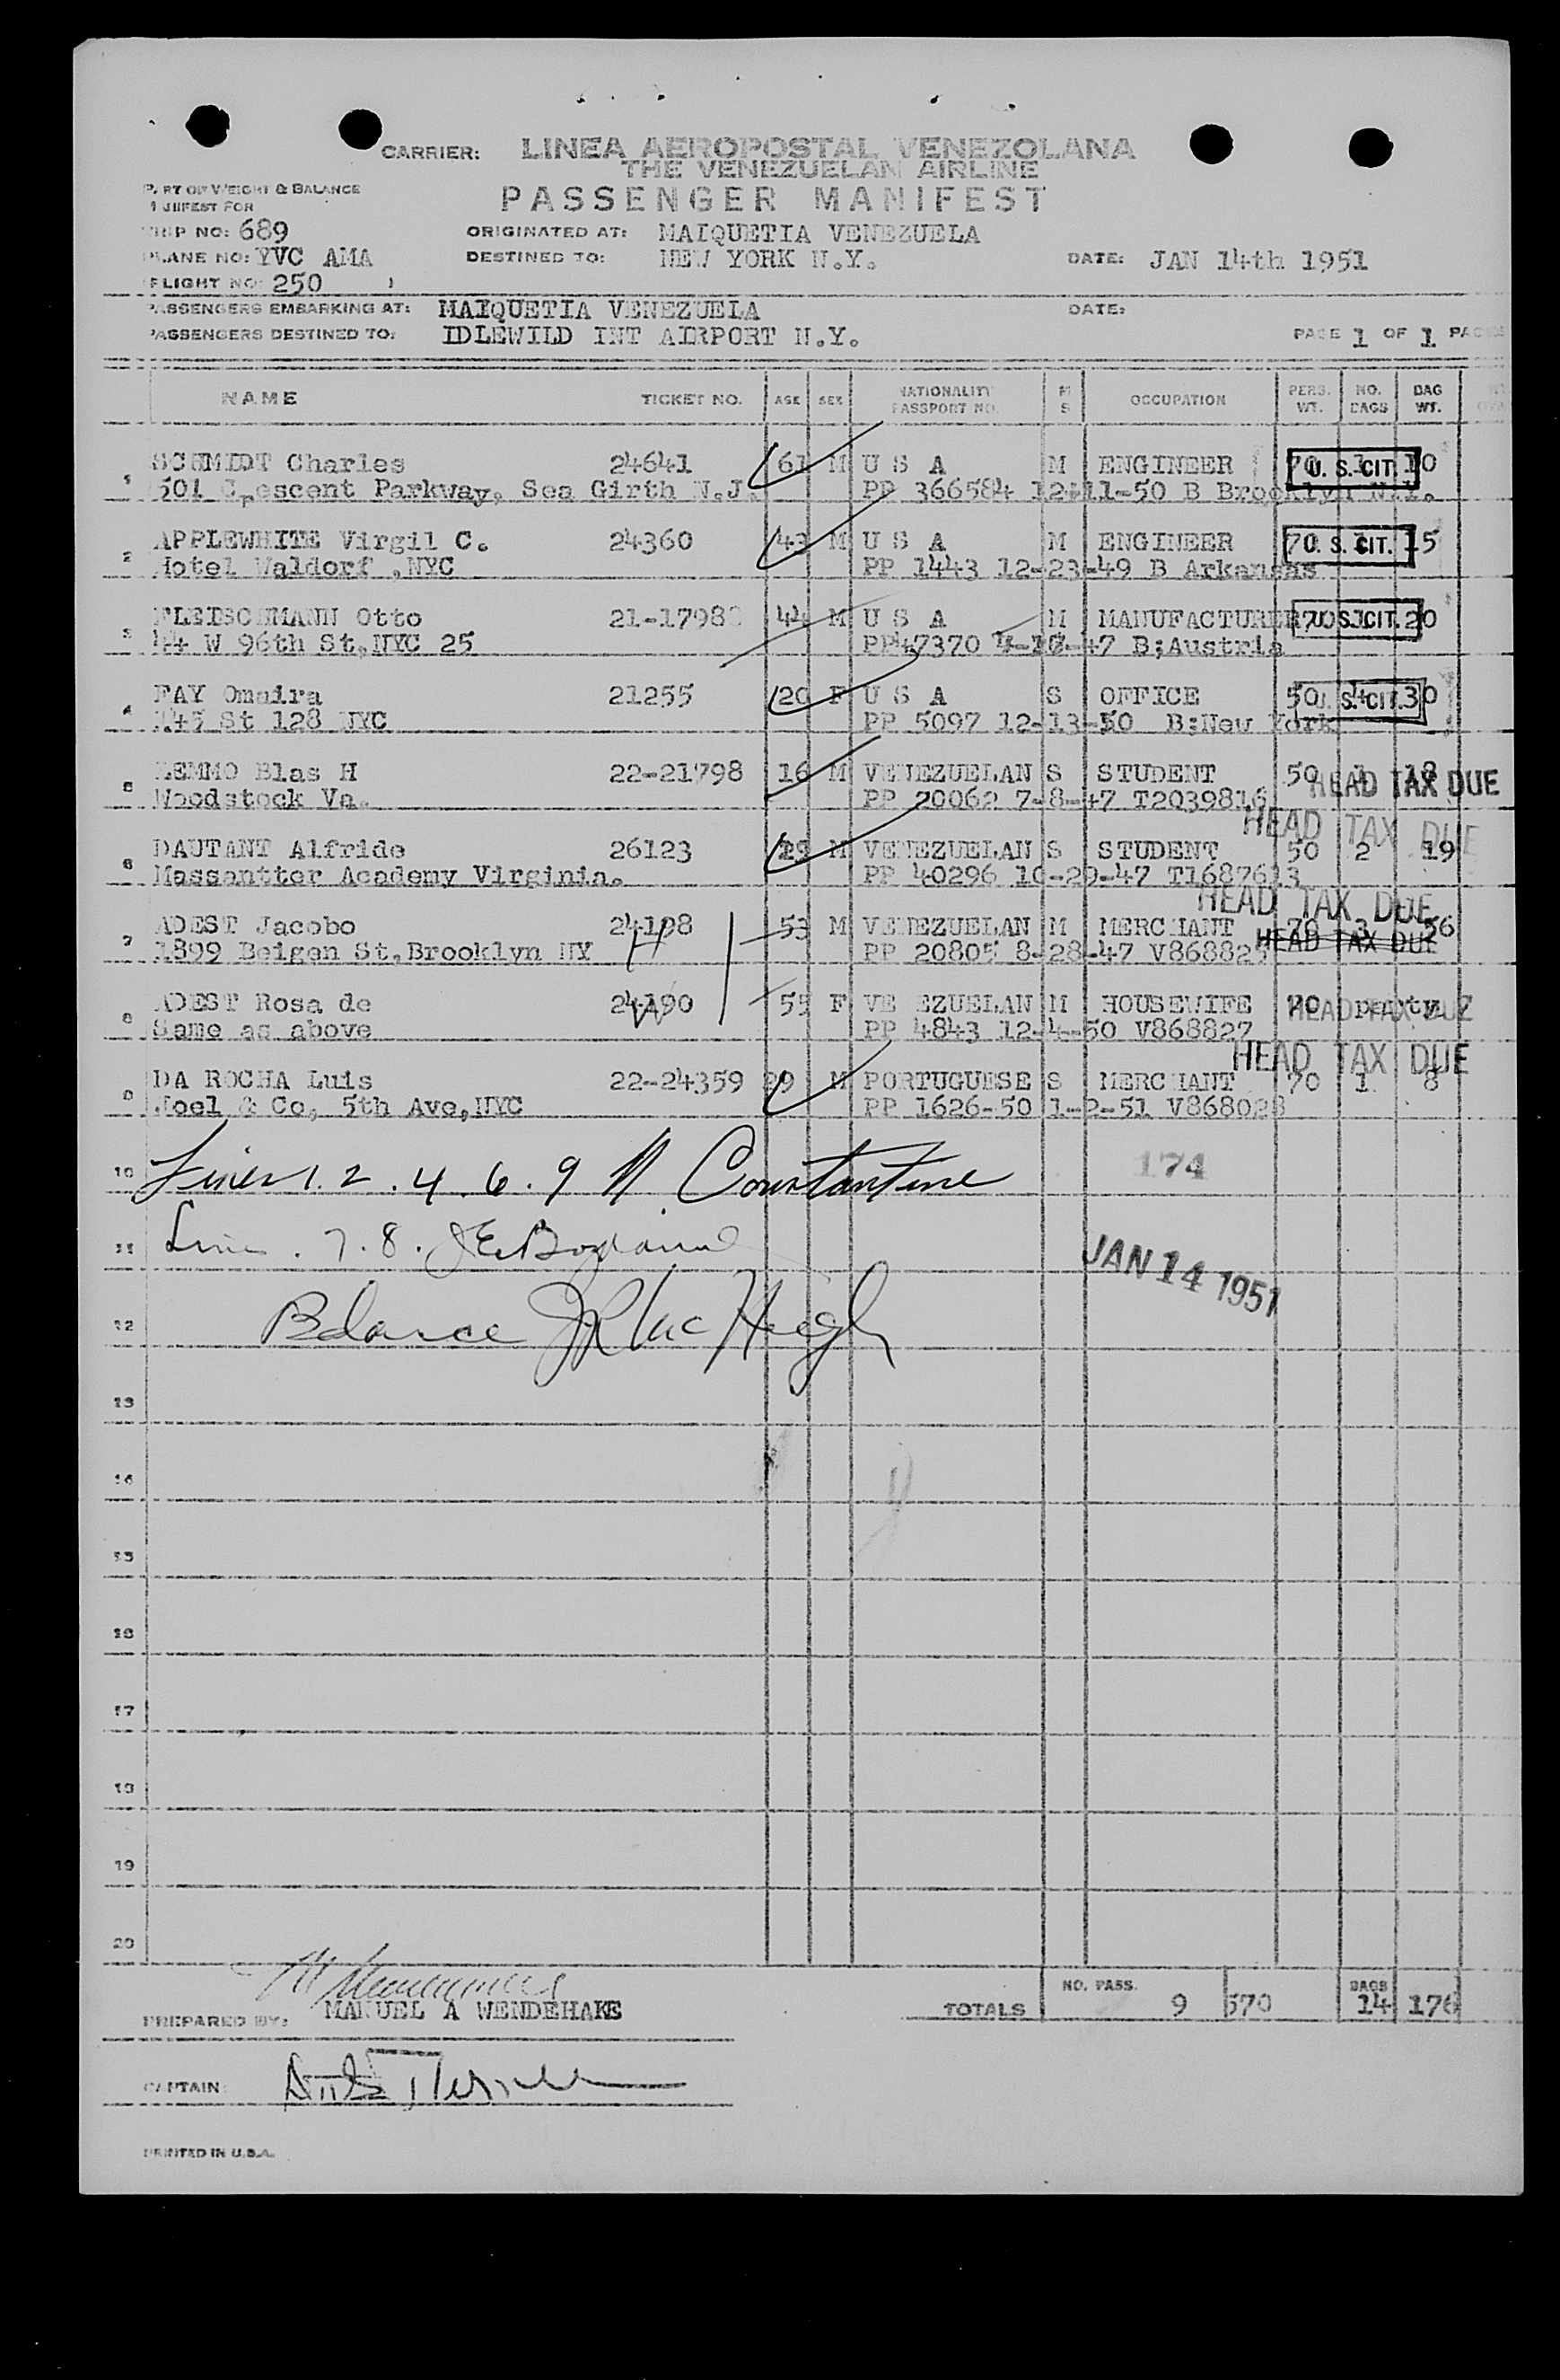 CARRIER: LINEA AEROPOSTAL VENEZOLANA
THE VENEZUELAN AIRLINE
PART OF WEIGHT & BALANCE
PASSENGER MANIFEST
MANIFEST FOR
TRIP NO: 689 ORIGINATED AT: MAIQUETIA VENEZUELA
PLANE NO: YVC AMA DESTINED TO: NEW YORK N.Y. DATE: JAN 14th 1951
FLIGHT NO: 250
PASSENGERS EMBARKING AT: MAIQUETIA VENEZUELA DATE:
PASSENGERS DESTINED TO: IDLEWILD INT AIRPORT N.Y. PAGE 1 OF 1 PAGES
NAME TICKET NO. AGE SEX NATIONALITY PASSPORT NO. M S OCCUPATION PERS. WT. NO. BAGS BAG WT.
1 SCHMIDT Charles 24641 61 M U S A M ENGINEER 70 1 10 U. S. CIT.
501 Crescent Parkway, Sea Girth N.J. PP 366584 12-11-50 B Brooklyn N.Y.
2 APPLEWHITE Virgil C. 24360 43 M U S A M ENGINEER 70 1 15 U. S. CIT.
Hotel Waldorf ,NYC PP 1443 12-23-49 B Arkansas
3 FLEISCHMANN Otto 21-1798 44 M U S A M MANUFACTURER 70 1 20 U. S. CIT.
44 W 96th St,NYC 25 PP47370 -47 B;Austria
4 FAY Omaira 21255 20 F U S A S OFFICE 50 4 30 U. S. CIT.
St 128 NYC PP 5097 12-13-50 B;New York
5 LEMMO Blas H 22-21798 16 M VENEZUELAN S STUDENT 50 1 18 HEAD TAX DUE
Woodstock Va. PP 20062 7-8-47 T2039816
HEAD TAX DUE
6 DAUTANT Alfrido 26123 19 M VENEZUELAN S STUDENT 50 2 19
Massantter Academy Virginia. PP 40296 10-29-47 T1687613
HEAD TAX DUE
7 ADEST Jacobo 24198 53 M VENEZUELAN M MERCHANT 70 3 56
1899 Beigen St,Brooklyn NY PP 20805 8-28-47 V868825 HEAD TAX DUE
8 ADEST Rosa de 24190 55 F VENEZUELAN M HOUSEWIFE 70 party 7 HEAD TAX DUE
Same as above PP 4843 12-4-50 V868827
HEAD TAX DUE
9 DA ROCHA Luis 22-24359 29 M PORTUGUESE S MERCHANT 70 1 8
Noel & Co, 5th Ave,NYC PP 1626-50 1-2-51 V868028
10 Lines 1. 2. 4. 6. 9 N Constantine 174
11 Lines . 7. 8.
JAN 14 1951
12 Balance
13
14
15
16
17
18
19
20
TOTALS NO. PASS. 9 570 BAGS 14 176
PREPARED BY: MANUEL A WENDEHAKE
CAPTAIN:
PRINTED IN U.S.A.